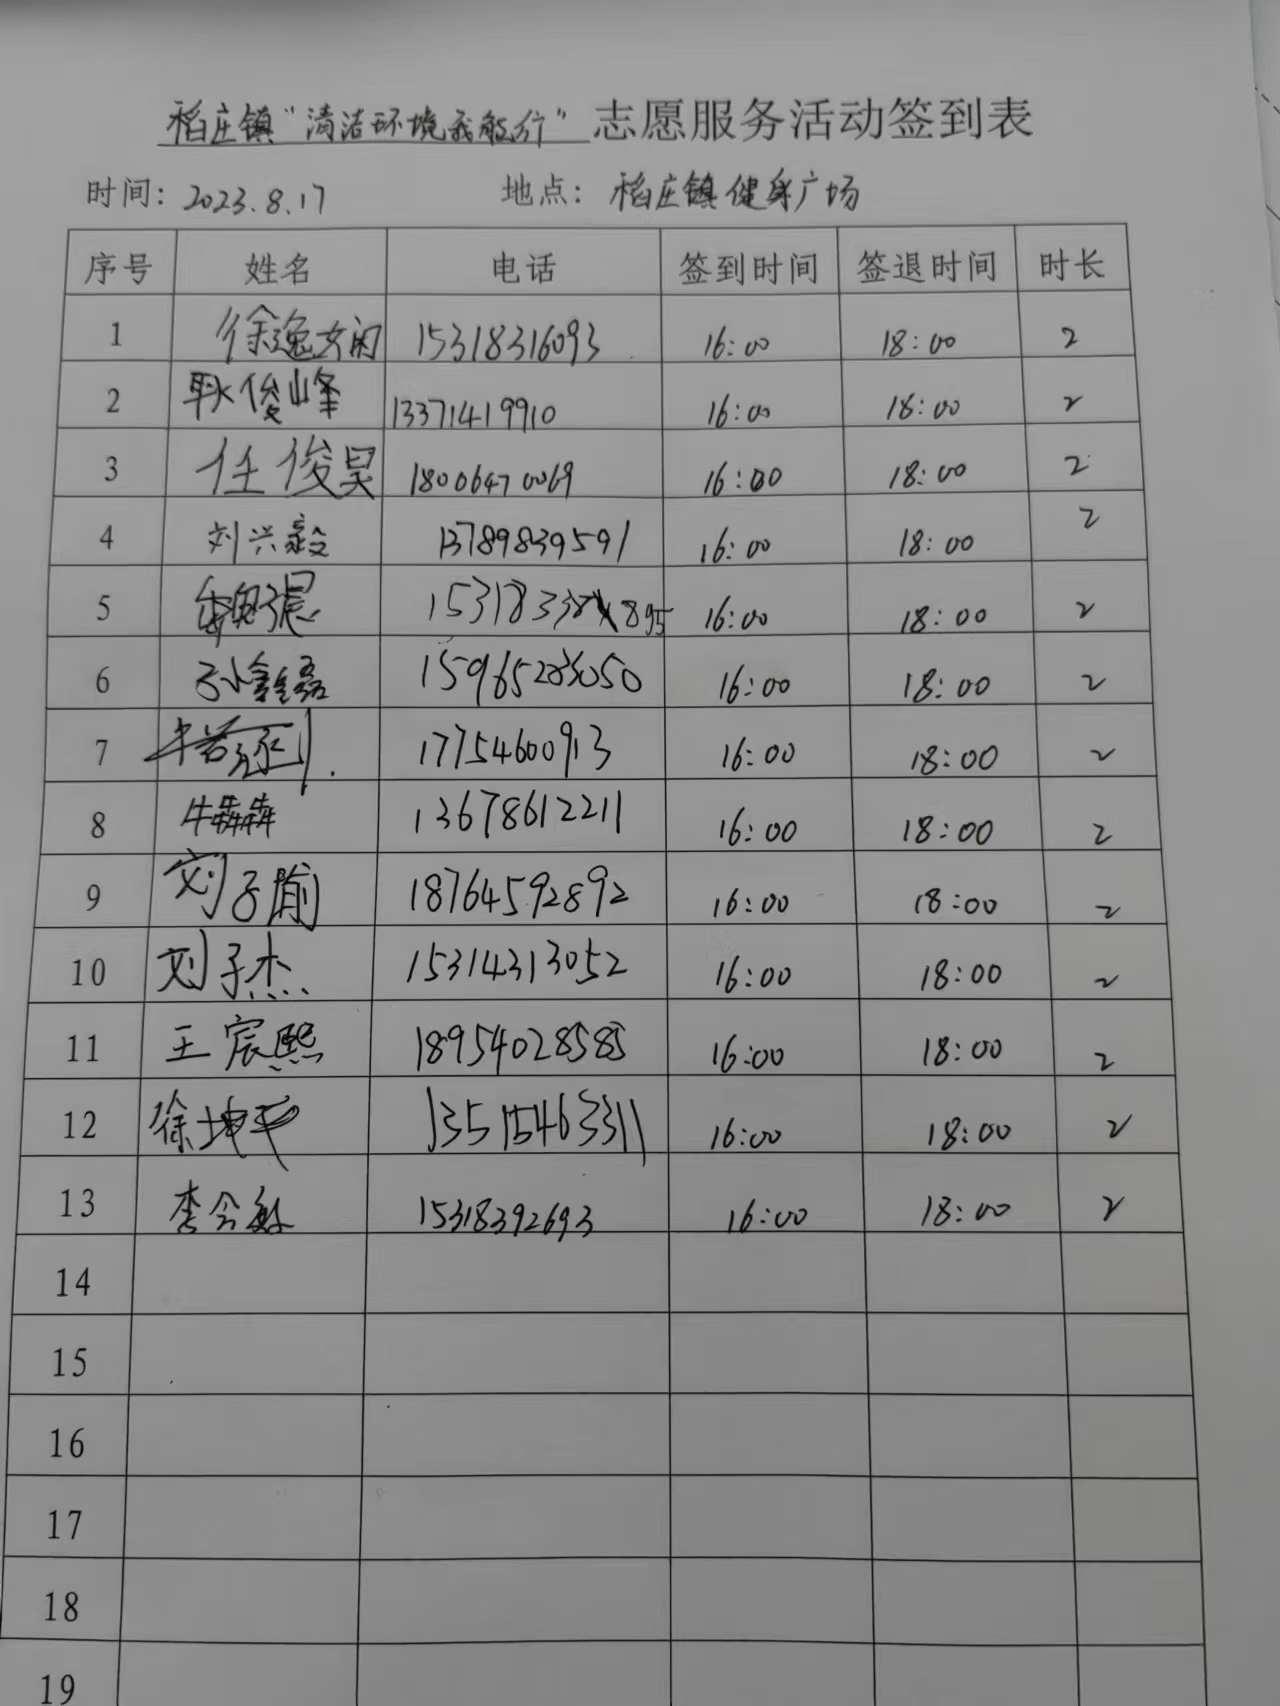 稻庄镇“清洁环境我能行”志愿服务活动签到表
时间：2023.8.17 地点：稻庄镇健身广场
序号 姓名 电话 签到时间 签退时间 时长
1 徐逸娴 15318316093 16:00 18:00 2
2 耿俊峰 13371419910 16:00 18:00 2
3 任俊昊 18006470069 16:00 18:00 2
4 刘兴毅 13789839591 16:00 18:00 2
5 16:00 18:00 2
6 孙鑫磊 16:00 18:00 2
7 17754600913 16:00 18:00 2
8 牛犇犇 13678612211 16:00 18:00 2
9 刘子腧 18764592892 16:00 18:00 2
10 刘子杰 15314313052 16:00 18:00 2
11 王宸熙 18954028585 16:00 18:00 2
12 徐坤平 13515463311 16:00 18:00 2
13 李 15318392693 16:00 18:00 2
14
15
16
17
18
19